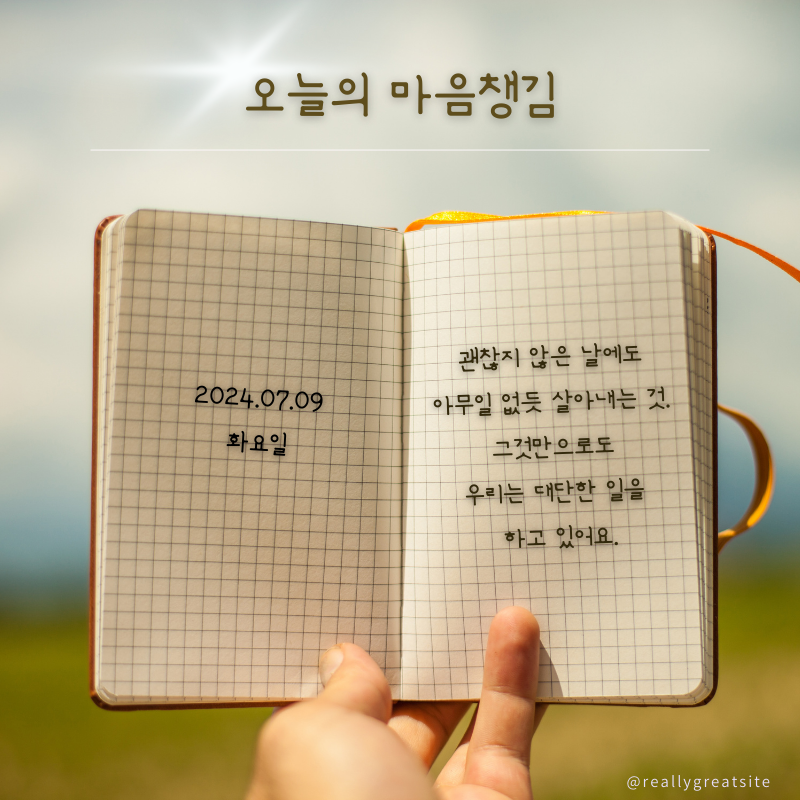 오늘의 마음챙김
2024.07.09
화요일
괜찮지 않은 날에도
아무일 없듯 살아내는 것.
그것만으로도
우리는 대단한 일을
하고 있어요.
@reallygreatsite